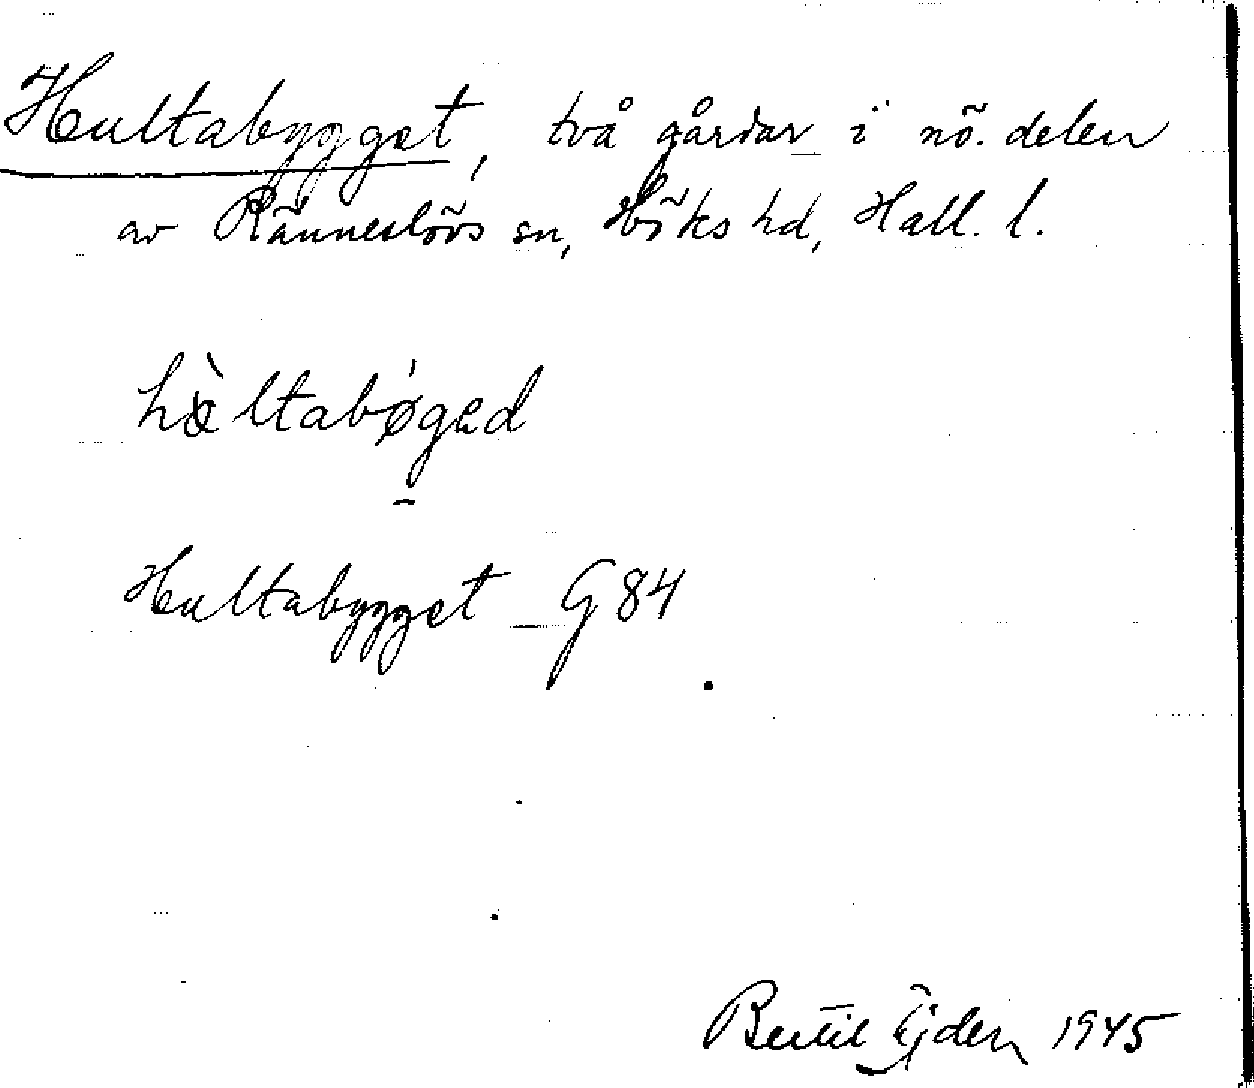 Hultabygget, två gårdar i nö. delen
av Ränneslövs sn, Höks hd, Hall. l.
hὰltabǿgəd
Hultabygget – G 84
Bertil Ejder 1945